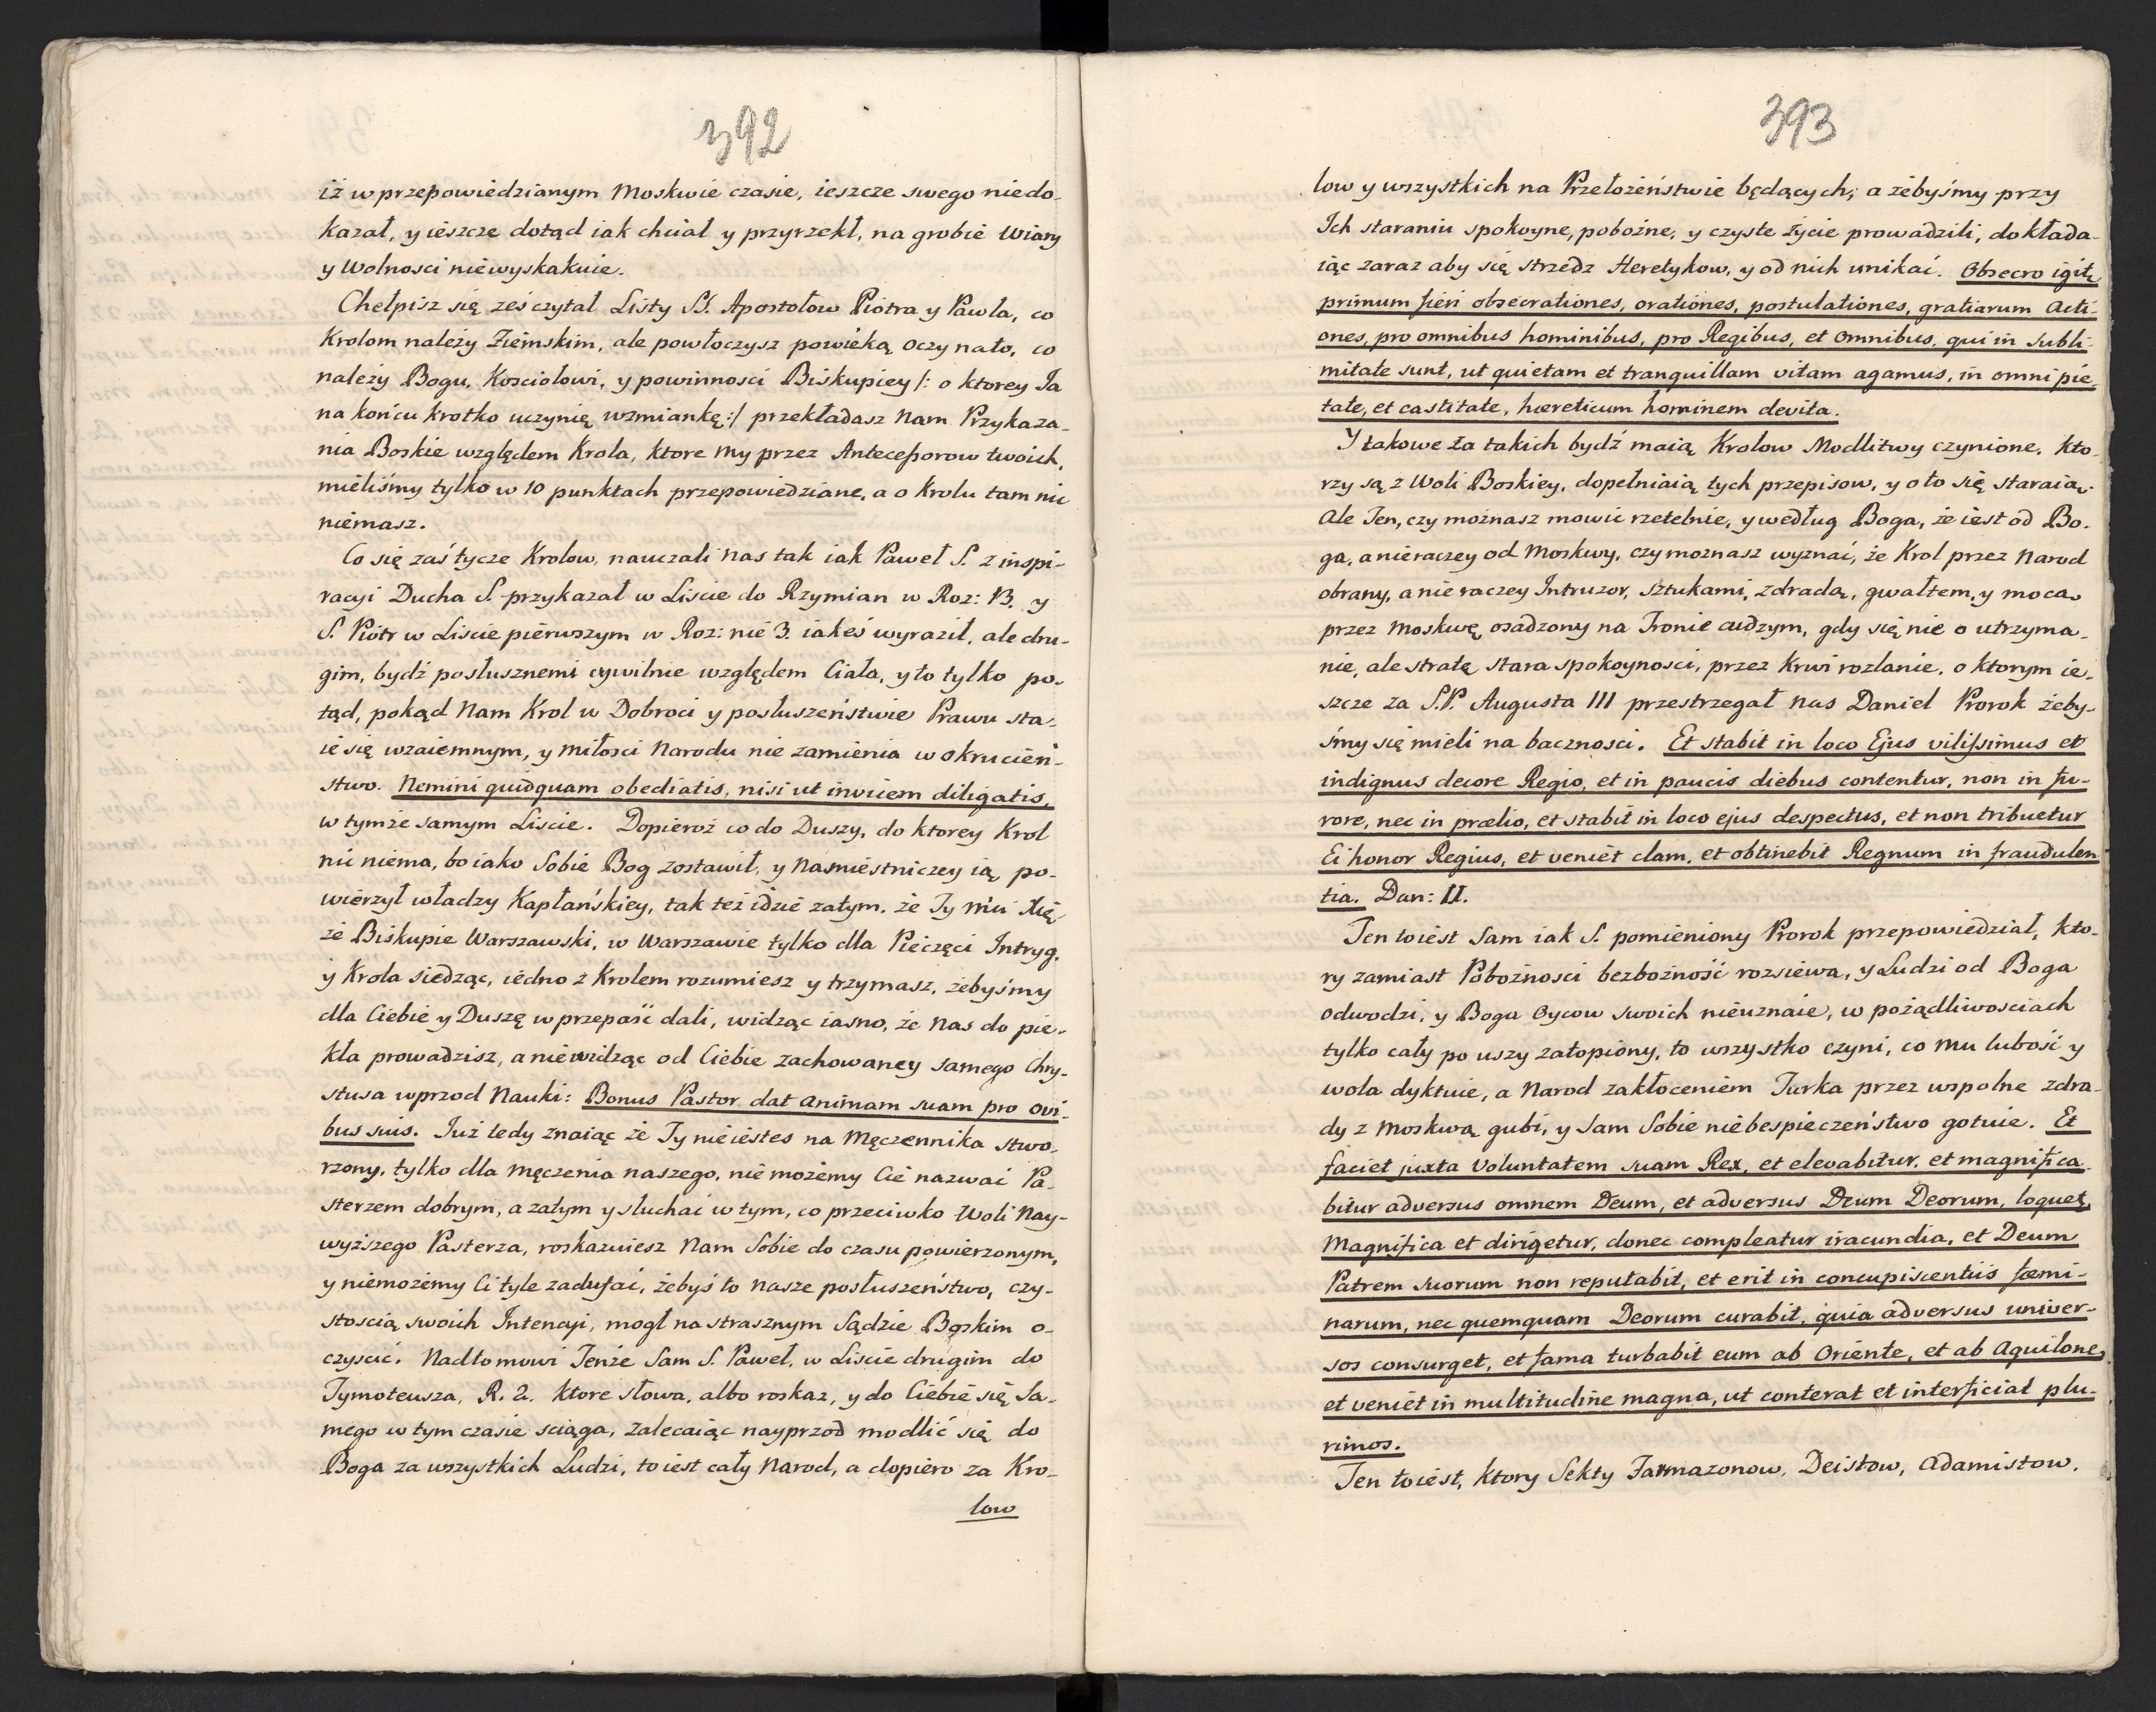 392
iż w przepowiedzianym Moskwie czasie, ieszcze swego niedo-
kazał, y ieszcze dotąd iak chciał y przyrzekł, na grobie Wiary
y Wolnosci niewyskakuie.
Chełpisz się żeś czytał Listy SS. Apostołow Piotra y Pawła, co
Krolom należy Ziemskim, ale powłoczysz powieką oczy nato, co
należy Bogu, Kosciołowi, y powinnosci Biskupiey /: o ktorey Ja
na końcu krotko uczynię wzmiankę :/ przekładasz Nam Przykaza-
nia Boskie względem Krola, ktore my przez Antecessorow twoich,
mieliśmy tylko w 10 punktach przepowiedziane, a o Krolu tam nic
niemasz.
Co się zaś tycze Krolow, nauczali nas tak iak Paweł S. z inspi-
racyi Ducha S. przykazał w Liscie do Rzymian w Roz: 13. y
S. Piotr w Liscie pierwszym w Roz: nie 3. iakeś wyraził, ale dru-
gim, bydź posłusznemi cywilnie względem Ciała, y to tylko po-
tąd, pokąd Nam Krol w Dobroci y posłuszeństwie Prawu sta-
ie się wzaiemnym, y miłosci Narodu nie zamienia w okrucień-
stwo. Nemini quidquam obediatis, nisi ut invicem diligatis,
w tymże samym Liscie. Dopieroż co do Duszy, do ktorey Krol
nic niema, bo iako Sobie Bog zostawił, y Namiestniczey ią po-
wierzył władzy Kapłańskiey, tak też idzie zatym, że Ty Mci Xię-
że Biskupie Warszawski, w Warszawie tylko dla Pieczęci Intryg,
y Krola siedząc, iedno z Krolem rozumiesz y trzymasz, żebyśmy
dla Ciebie y Duszę w przepaść dali, widząc iasno, że Nas do pie-
kła prowadzisz, a niewidząc od Ciebie zachowaney samego Chry-
stusa wprzod Nauki: Bonus Pastor dat animam suam pro ovi-
bus suis. Już tedy znaiąc że Ty nieiestes na Męczennika stwo-
rzony, tylko dla męczenia naszego, nie możemy Cie nazwać Pa-
sterzem dobrym, a zatym y słuchać w tym, co przeciwko Woli Nay-
wyższego Pasterza, roskazuiesz Nam Sobie do czasu powierzonym,
y niemożemy Ci tyle zadufać, żebyś to nasze posłuszeństwo, czy-
stoscią swoich Intencyi, mogł na strasznym Sądzie Boskim o-
czyscić. Nadto mowi Tenże Sam S. Paweł, w Liscie drugim do
Tymoteusza, R. 2. ktore słowa, albo roskaz, y do Ciebie się Sa-
mego w tym czasie sciąga, zalecaiąc nayprzod modlić się do
Boga za wszystkich Ludzi, to iest cały Narod, a dopiero za Kro-
low
393
low y wszystkich na Przełożeństwie będących; a żebyśmy przy
Ich staraniu spokoyne, pobożne, y czyste życie prowadzili, dokłada-
iąc zaraz aby się strzedz Heretykow, y od nich unikać. Obsecro igitr
primum fieri obsecrationes, orationes, postulationes, gratiarum Acti-
ones, pro omnibus hominibus, pro Regibus, et omnibus, qui in Subli-
mitate sunt, ut quietam et tranquillam vitam agamus, in omni pie-
tate, et castitate, hæreticum hominem devita.
Y takowe za takich bydź maią Krolow Modlitwy czynione, kto-
rzy są z Woli Boskiey, dopełniaią tych przepisow, y o to się staraią.
Ale Ten, czy możnasz mowić rzetelnie, y według Boga, że iest od Bo-
ga, a nieraczey od Moskwy, czy moznasz wyznać, że Krol przez Narod
obrany, a nie raczey Intruzor, sztukami, zdradą, gwałtem, y mocą
przez Moskwę osadzony na Tronie cudzym, gdy się nie o utrzyma-
nie, ale stratę stara spokoynosci, przez Krwi rozlanie, o ktorym ie-
szcze za S.P. Augusta III przestrzegał nas Daniel Prorok żeby-
śmy się mieli na bacznosci. Et stabit in loco Ejus vilissimus et
indignus decore Regio, et in paucis diebus contentur, non in fu-
rore, nec in prælio, et stabit in loco ejus despectus, et non tribuetur
Ei honor Regius, et veniet clam, et obtinebit Regnum in fraudulen
tia. Dan: II.
Ten to iest Sam iak S. pomieniony Prorok przepowiedział, kto-
ry zamiast Pobożnosci bezbożność rozsiewa, y Ludzi od Boga
odwodzi, y Boga Oycow swoich nieuznaie, w pożądliwosciach
tylko cały po uszy zatopiony, to wszystko czyni, co mu lubość y
wola dyktuie, a Narod zakłoceniem Turka przez wspolne zdra-
dy z Moskwą gubi, y Sam Sobie niebespieczeństwo gotuie. Et
faciet juxta Voluntatem suam Rex, et elevabitur, et magnifica-
bitur adversus omnem Deum, et adversus Deum Deorum, loquetr
Magnifica et dirigetur, donec compleatur iracundia, et Deum
Patrem suorum non reputabit, et erit in concupiscentiis fœmi-
narum, nec quemquam Deorum curabit, quia adversus univer-
sos consurget, et fama turbabit eum ab Oriente, et ab Aquilone,
et veniet in multitudine magna, ut conterat et interficiat plu-
rimos.
Ten to iest, ktory Sekty Farmazonow, Deistow, Adamistow,